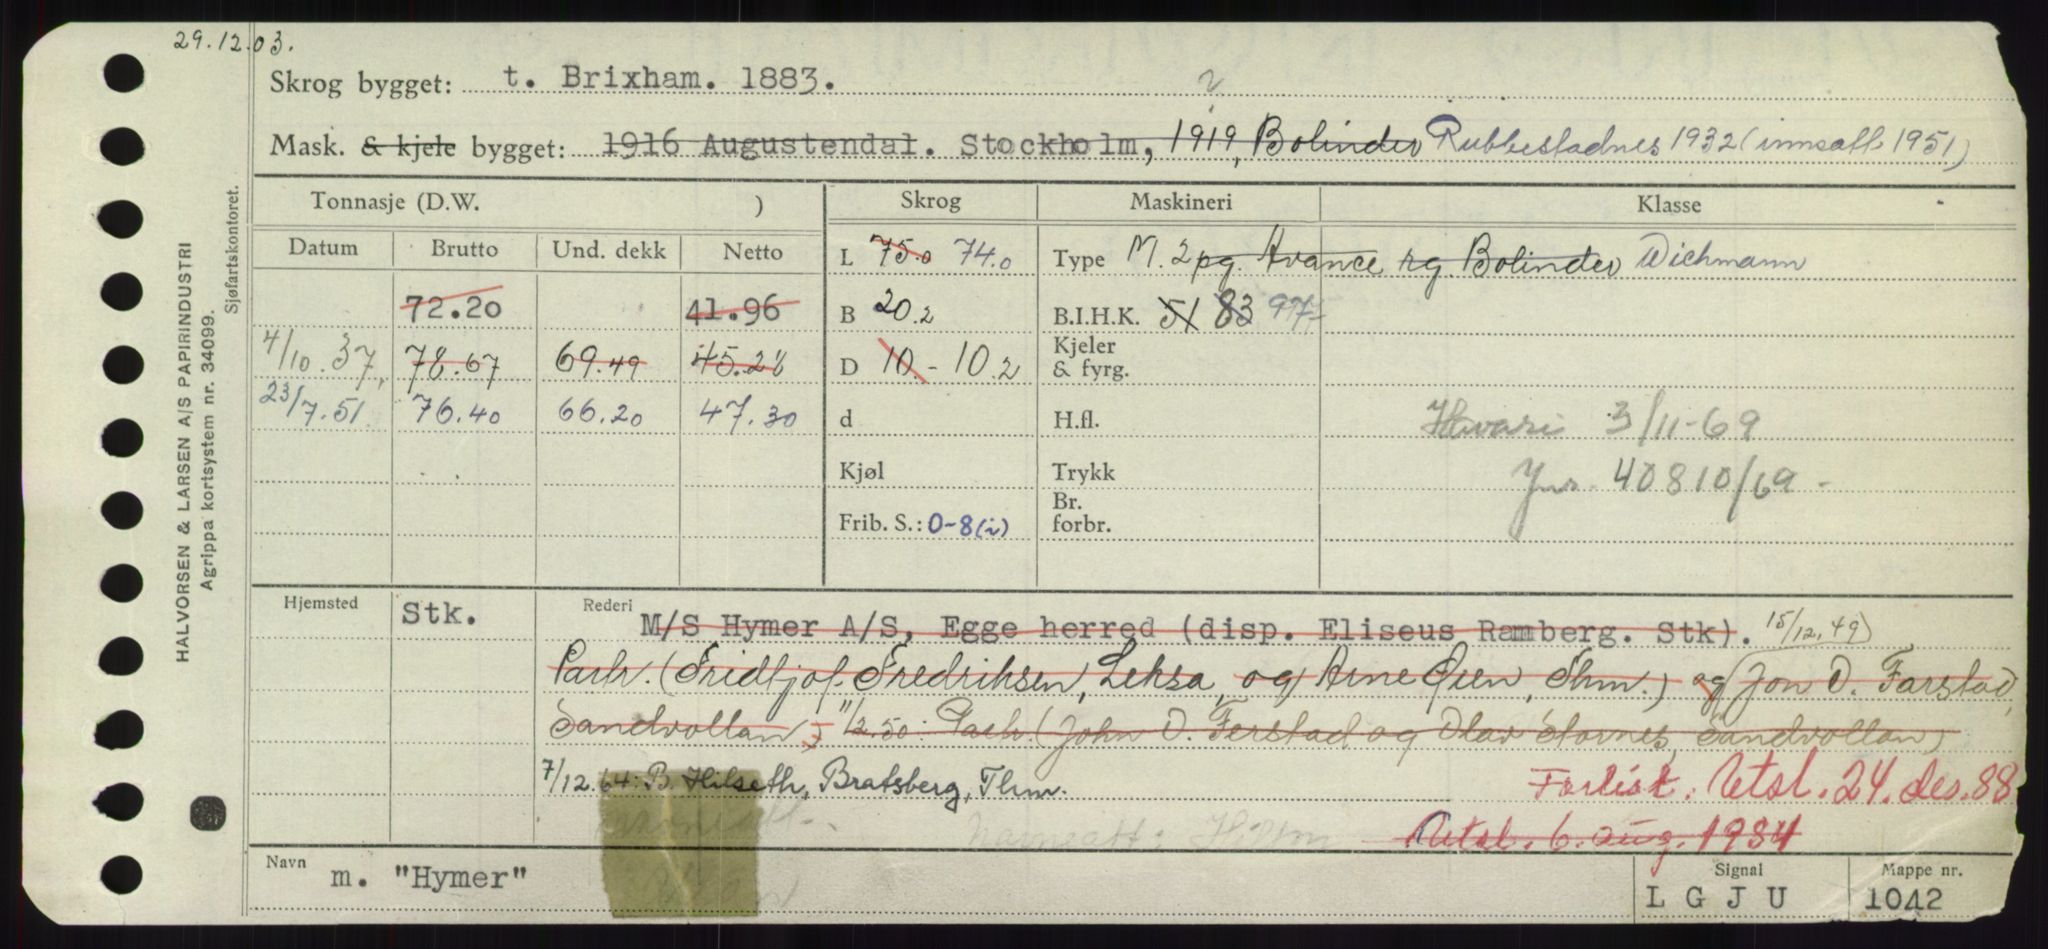 29.12.03.
Skrog bygget: t. Brixham. 1883.
Mask. & kjele bygget: 1916 Augustendal. Stockholm, 1919, Bolinder Rubbestadnes 1932 (innsatt 1951)
Tonnasje (D.W. ) Skrog Maskineri Klasse
Datum Brutto Und. dekk Netto L 75.0 74.0 Type M. 2 pg. Avance rg. Bolinder Wichmann
72.20 41.96 B 20.2 B.I.H.K. 51 83 97
4/10.37, 78.67 69.49 45.28 D 10. - 10.2 Kjeler & fyrg.
23/7.51 76.40 66.20 47.30 d H.fl. Havari 3/11-69
Kjøl Trykk Jnr. 40810/69 -
Frib. S.: 0-8 (i) Br. forbr.
Hjemsted Stk. Rederi M/S Hymer A/S, Egge herred (disp. Eliseus Ramberg. Stk). 15/12.49)
Partr. (Fridtjof Fredriksen, Leksa, og Arne Øien, Thm.) og (Jon O. Farstad,
Sandvollan, 11/2.50: Partr. (John O. Ferstad og Olav Stornes, Sandvollan)
7/12.64: B. Hilseth, Bratsberg, Thm. Forlist. Utsl. 24. des. 88
Navnsatt: Utsl. 6. aug. 1984
Navn m. "Hymer" Signal L G J U Mappe nr. 1042
HALVORSEN & LARSEN A/S PAPIRINDUSTRI
Agrippa kortsystem nr. 34099.
Sjøfartskontoret.